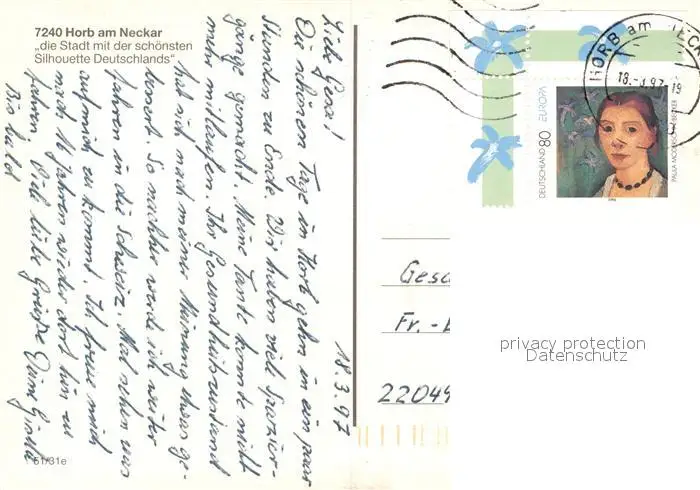 7240 Horb am Neckar
„die Stadt mit der schönsten
Silhouette Deutschlands"
18.3.97
Liebe Gesa!
Die schönen Tage in Horb gehn in ein paar
Stunden zu Ende. Wir haben viel Spazier-
gänge gemacht. Meine Tante konnte nicht
mehr mitlaufen. Ihr Gesundheitszustand
hat sich nach meiner Meinung etwas ge-
bessert. So nachher werde ich weiter
fahren in die Schweiz. Mal sehen was
auf mich zu kommt. Ich freue mich
nach 16 Jahren wieder dort hin zu
fahren. Viele liebe Grüße Deine
Bis bald
51/31e
HORB am NECK
18.-3.97-19
DEUTSCHLAND 80 EUROPA
PAULA MODERSOHN-BECKER
1996
Gesa
Fr.-
22049
privacy protection
Datenschutz